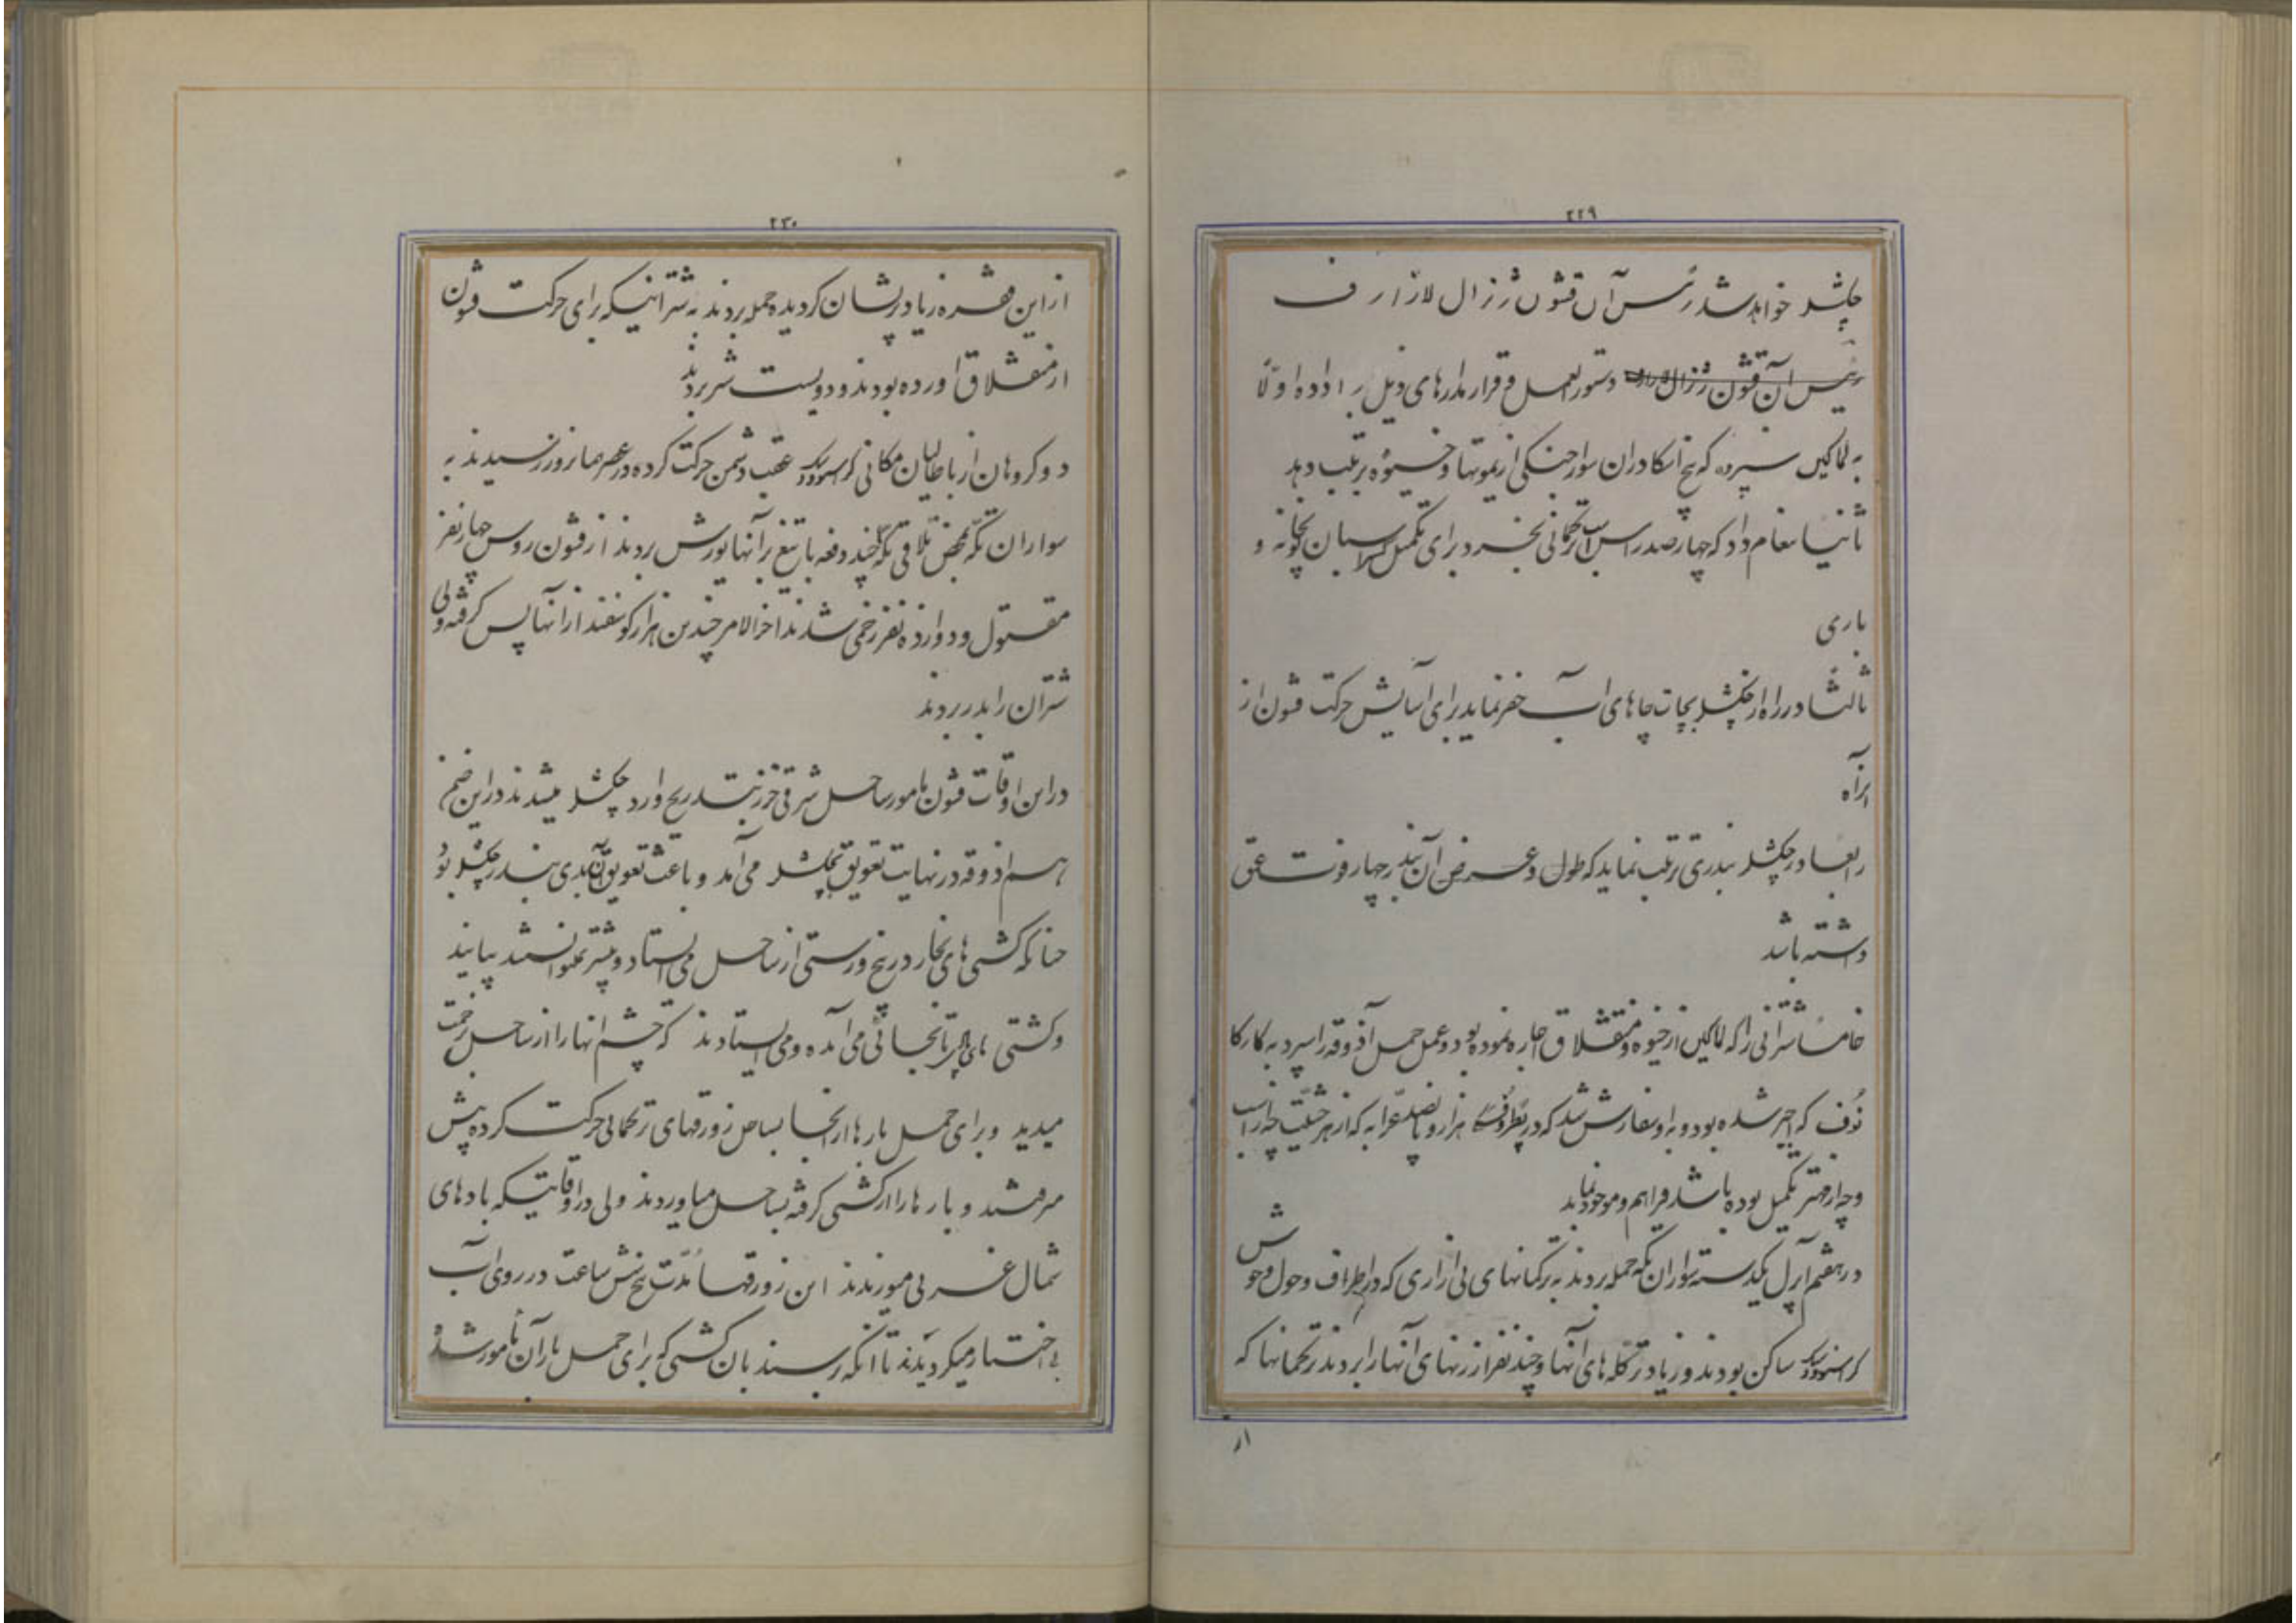 ۲۲۹
چکشلر خواهد شد رئیس آن قشون ژنرال لازارف
رئیس آن قشون ژنرال دستورالعمل و قرارمدارهای ذیل را داده اولا
به لماکین سپرده که پنج اسکادران سوار جنگی از یموتها و خیوه ترتیب دهد
ثانیا پیغام داد که چهارصد راس اسب ترکمانی بخرد برای تکمیل اسبان توپخانه و
باری
ثالثا در راه از چکشلر بچات چاههای آب حفر نماید برای آسایش حرکت قشون از
آنراه
رابعا در چکشلر بندری ترتیب نماید که طول و عرض آن بندر چهار فوت عمق
داشته باشد
خامسا شترانی را که لماکین از خیوه و منقشلاق اجاره نموده بود و عمل حمل آذوقه را سپرد به کارکا
نوف که اجیر شده بود و به او سفارش شد که در هزار و پانصد عرابه که از هر حیثیت چه از اسب
و چه از مهتر تکمیل بوده باشد فراهم و موجود نماید
در هفتم آپریل یکدسته سواران تکه حمله بردند به ترکمانهای بی آزاری که در اطراف و حول و حوش
کراسنوودسک ساکن بودند و زیادتر گله های آنها و چند نفر از زنهای آنها را بردند ترکمانها که
از
۲۳۰
از این فقره زیاد پریشان گردیده حمله بردند به شترانیکه برای حرکت قشون
از منقشلاق آورده بودند و دویست شتر بردند
دو گروهان از باطالیان مکانی کراسنوودسک عقب دشمن حرکت کرده در عصر همانروز رسیدند به
سواران تکه بمحض تلاقی تکه چند دفعه با تیغ بر آنها یورش بردند از قشون روس چهار نفر
مقتول و دوازده نفر زخمی شدند آخرالامر چندین هزار گوسفند از آنها پس گرفته ولی
شتران را بدر بردند
در این اوقات قشون مامور ساحل شرقی خزر بتدریج وارد چکشلر میشدند در این ضمن
هم آذوقه در نهایت تعویق بچکشلر می آمد و باعث تعویق آن بدی بندر چکشلر بود
چنانکه کشتی های بخار در پنج ورستی از ساحل می ایستاد و پیشتر نمیتوانستند بیایند
و کشتی های تا بجائی می آمده و می ایستادند که چشم آنها را از ساحل بزحمت
میدید و برای حمل بارها از آنجا بساحل زورقهای ترکمانی حرکت کرده پیش
میرفتند و بارها را از کشتی گرفته بساحل میاوردند ولی در اوقاتیکه بادهای
شمال غربی میوزیدند این زورقها مدت پنج شش ساعت در روی آب
بی اختیار میگردیدند تا آنکه رسند بآن کشتی که برای حمل بار آن مامور شده